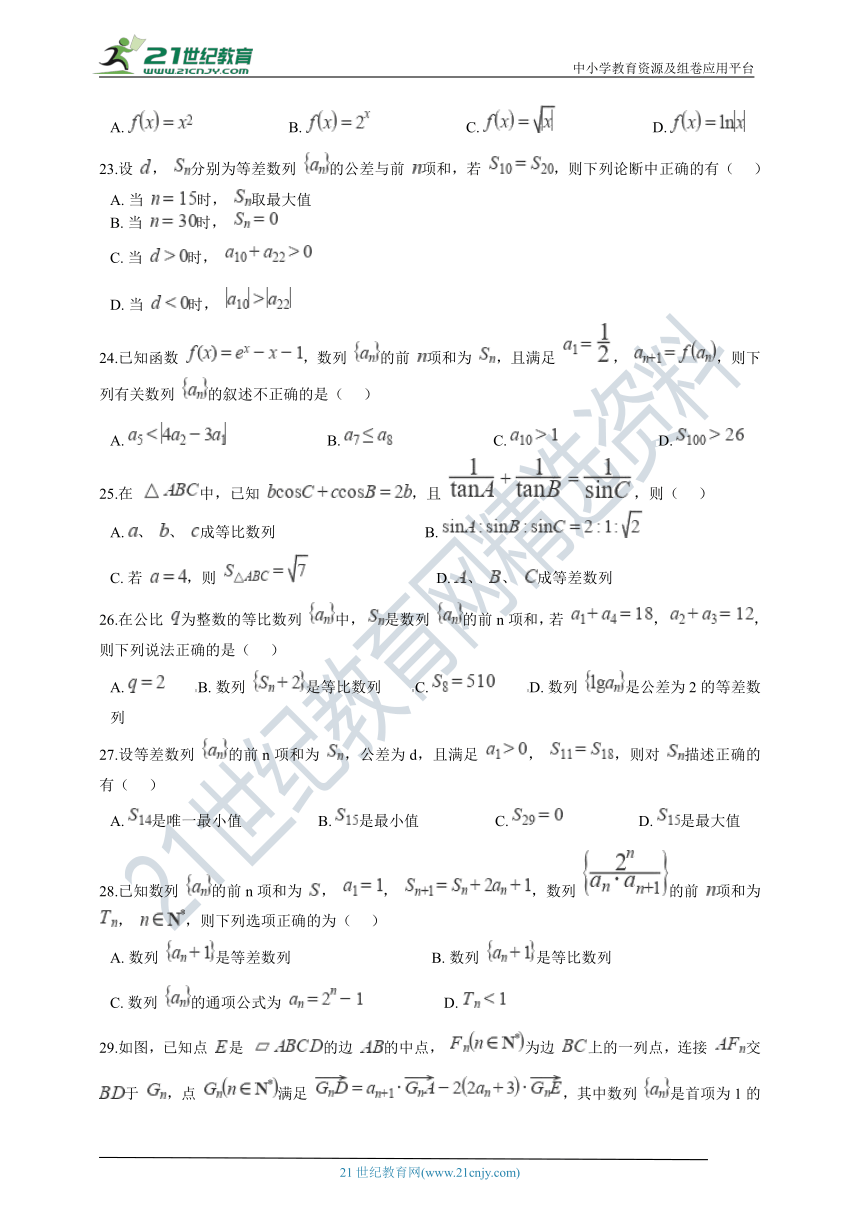 21世纪教育
www.21cnjy.com
中小学教育资源及组卷应用平台
A. f(x)=x² B. f(x)=2ˣ C. f(x)=√|x| D. f(x)=ln|x|
23.设 d， Sₙ分别为等差数列 {aₙ}的公差与前 n项和，若 S₁₀=S₂₀，则下列论断中正确的有（ ）
A. 当 n=15时， Sₙ取最大值
B. 当 n=30时， Sₙ=0
C. 当 d>0时， a₁₀+a₂₂>0
D. 当 d<0时， |a₁₀|>|a₂₂|
24.已知函数 f(x)=eˣ−x−1，数列 {aₙ}的前 n项和为 Sₙ，且满足 a₁=1/2， aₙ₊₁=f(aₙ)，则下
列有关数列 {aₙ}的叙述不正确的是（ ）
A. a₅<|4a₂−3a₁| B. a₇≤a₈ C. a₁₀>1 D. S₁₀₀>26
25.在 △ABC中，已知 bcosC+ccosB=2b，且 1/tanA+1/tanB=1/sinC，则（ ）
A. a、 b、 c成等比数列 B. sinA:sinB:sinC=2:1:√2
C. 若 a=4，则 S△ABC=√7 D. A、 B、 C成等差数列
26.在公比 q为整数的等比数列 {aₙ}中， Sₙ是数列 {aₙ}的前 n 项和，若 a₁+a₄=18，a₂+a₃=12，
则下列说法正确的是（ ）
A. q=2 B. 数列 {Sₙ+2}是等比数列 C. S₈=510 D. 数列 {lgaₙ}是公差为 2 的等差数
列
27.设等差数列 {aₙ}的前 n 项和为 Sₙ，公差为 d，且满足 a₁>0， S₁₁=S₁₈，则对 Sₙ描述正确的
有（ ）
A. S₁₄是唯一最小值 B. S₁₅是最小值 C. S₂₉=0 D. S₁₅是最大值
28.已知数列 {aₙ}的前 n 项和为 S， a₁=1， Sₙ₊₁=Sₙ+2aₙ+1，数列 {2ⁿ/(aₙ·aₙ₊₁)}的前 n项和为
Tₙ， n∈N*，则下列选项正确的为（ ）
A. 数列 {aₙ+1}是等差数列 B. 数列 {aₙ+1}是等比数列
C. 数列 {aₙ}的通项公式为 aₙ=2ⁿ−1 D. Tₙ<1
29.如图，已知点 E是 ▱ABCD的边 AB的中点， Fₙ(n∈N*)为边 BC上的一列点，连接 AFₙ交
BD于 Gₙ，点 Gₙ(n∈N*)满足 GₙD=aₙ₊₁·GₙA−2(2aₙ+3)·GₙE，其中数列 {aₙ}是首项为 1 的
21世纪教育网精选资料
21 世纪教育网(www.21cnjy.com)